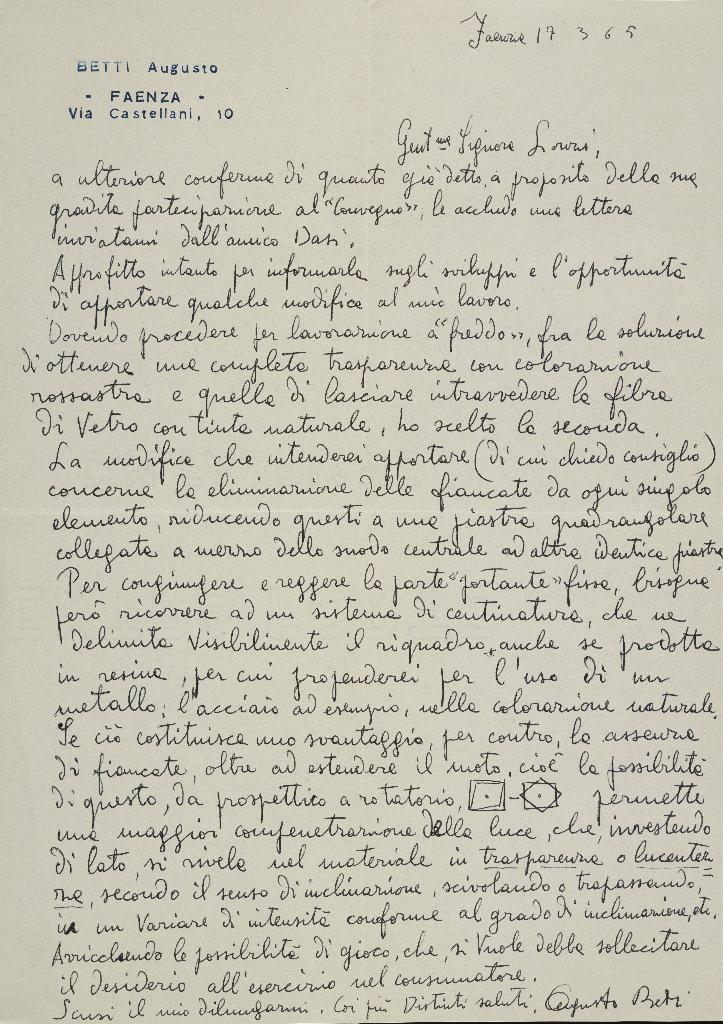 Faenza 17 3 65
BETTI Augusto
- FAENZA -
Via Castellani, 10
Gent.ma Signora
a ulteriore conferma di quanto già detto, a proposito della sua
gradita partecipazione al "Convegno", le accludo una lettera
inviatami dall'amico Dasi.
Approfitto intanto per informarla sugli sviluppi e l'opportunità
di apportare qualche modifica al mio lavoro.
Dovendo procedere per lavorazione a "freddo", fra la soluzione
di ottenere una completa trasparenza con colorazione
rossastra e quella di lasciare intravvedere la fibra
di Vetro con tinta naturale, ho scelto la seconda.
La modifica che intenderei apportare (di cui chiedo consiglio)
concerne la eliminazione delle fiancate da ogni singolo
elemento, riducendo questi a una piastra quadrangolare
collegata a mezzo dello snodo centrale ad altra identica piastra
Per congiungere e reggere la parte "portante" fissa, bisogna
però ricorrere ad un sistema di centinatura, che ne
delimita Visibilmente il riquadro, anche se prodotta
in resina, per cui propenderei per l'uso di un
metallo; l'acciaio ad esempio, nella colorazione naturale.
Se ciò costituisce uno svantaggio, per contro, la assenza
di fiancate, oltre ad estendere il moto, cioè la possibilità
di questo, da prospettico a rotatorio, permette
una maggior compenetrazione della luce, che, investendo
di lato, si rivela nel materiale in trasparenza o lucentez=
za, secondo il senso di inclinazione, scivolando o trapassando,
in un Variare di intensità conforme al grado di inclinazione, etc.
Arricchendo le possibilità di gioco, che, si Vuole debba sollecitare
il desiderio all'esercizio nel consumatore.
Scusi il mio dilungarmi. Coi più Distinti saluti. Augusto Betti